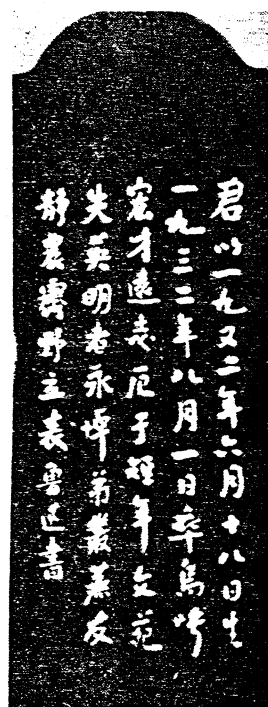 君以一九又二年六月十八日生
一九三二年八月一日卒烏呼
宏才遠志厄于短年文苑
失英明者永悼弟叢蕪友
静農霽野立表魯迅書